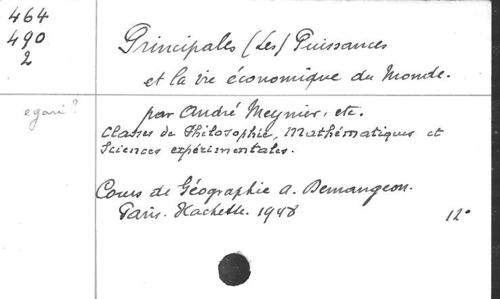 464
490
2
Principales (Les) Puissances
et la vie économique du Monde.
egaré?
par André Meynier, etc.
Classes de Philosophie, Mathématiques et
Sciences expérimentales.
Cours de Géographie A. Demangeon.
Paris. Hachette. 1948
12°